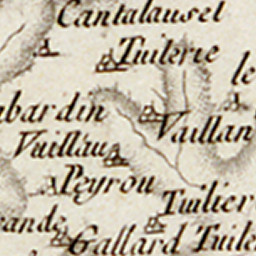 Cantalauset
Tuilerie
le
bardin
Vaillan
Vuillau
Peyrou
Tuilier
ande
Gallard Tuile